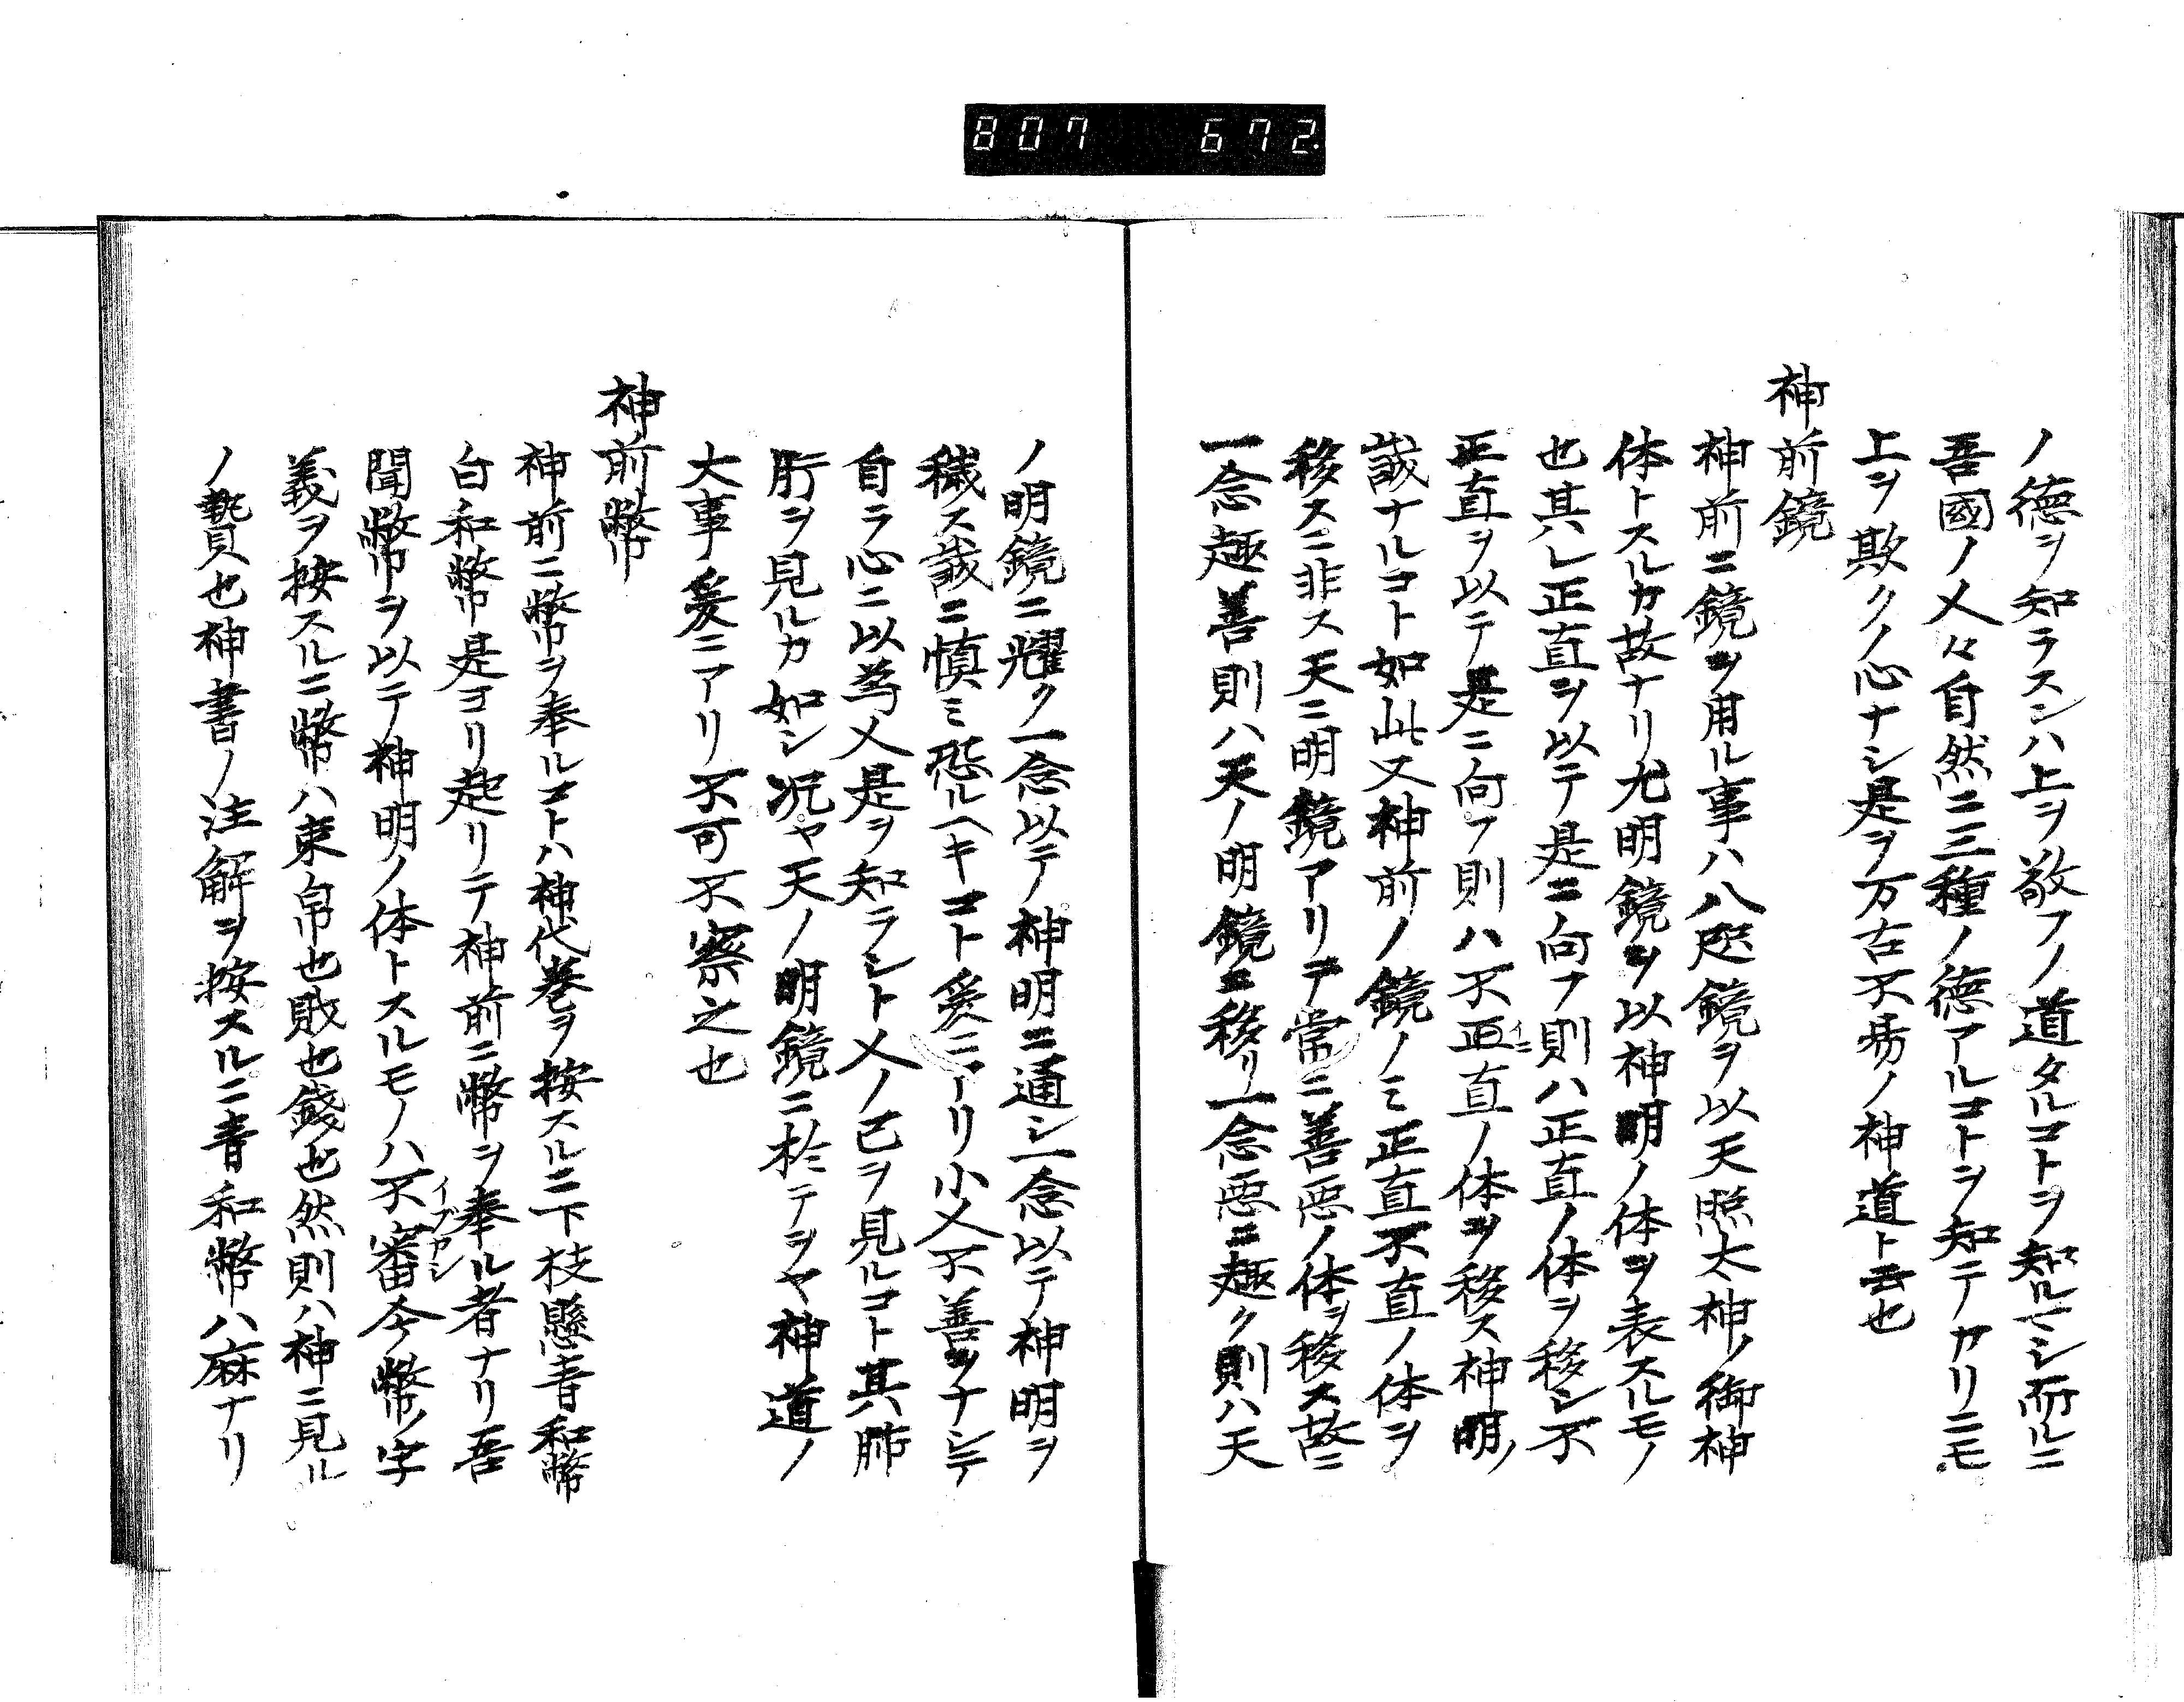 807 672.
ノ德ヲ知ラスンハ上ヲ敬フノ道タルコトヲ知ルヘシ而ルニ
吾國ノ人々自然ニ三種ノ德アルコトヲ知テカリニモ
上ヲ欺クノ心ナシ是ヲ万古不易ノ神道ト云也
神前鏡
神前ニ鏡ヲ用ル事ハ八咫鏡ヲ以天照太神ノ御神
体トスルカ故ナリ尤明鏡ヲ以神明ノ体ヲ表スルモノ
也其レ正直ヲ以テ是ニ向フ則ハ正直ノ体ヲ移シ不
正直ヲ以テ是ニ向フ則ハ不正直ノ体ヲ移ス神明ノ
誠ナルコト如此又神前ノ鏡ノミ正直不直ノ体ヲ
移スニ非ス天ニ明鏡アリテ常ニ善悪ノ体ヲ移ス故ニ
一念趣善則ハ天ノ明鏡ニ移リ一念悪ニ趣ク則ハ天
ノ明鏡ニ耀ク一念以テ神明ニ通シ一念以テ神明ヲ
穢ス誠ニ慎ミ恐ルヘキコト爰ニアリ小人不善ヲナシテ
自ラ心ニ以為人是ヲ知ラシト人ノ己ヲ見ルコト其肺
肝ヲ見ルカ如シ况ヤ天ノ明鏡ニ於テヲヤ神道ノ
大事爰ニアリ不可不察之也
神前幣
神前ニ幣ヲ奉ルコトハ神代巻ヲ按スルニ下枝懸青和幣
白和幣是ヨリ起リテ神前ニ幣ヲ奉ル者ナリ吾
聞幣ヲ以テ神明ノ体トスルモノハ不審今幣ノ字
イブカシ
義ヲ按スルニ幣ハ束帛也財也錢也然則ハ神ニ見ル
ノ贄也神書ノ注解ヲ按スルニ青和幣ハ麻ナリ